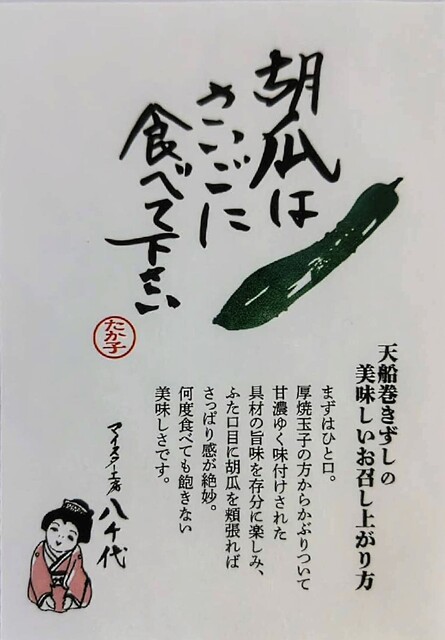 胡瓜は
さいごに
食べて下さい
たか子
天船巻きずしの
美味しいお召し上がり方
まずはひと口。
厚焼玉子の方からかぶりついて
甘濃ゆく味付けされた
具材の旨味を存分に楽しみ、
ふた口目に胡瓜を頬張れば
さっぱり感が絶妙。
何度食べても飽きない
美味しさです。
マイスター工房
八千代